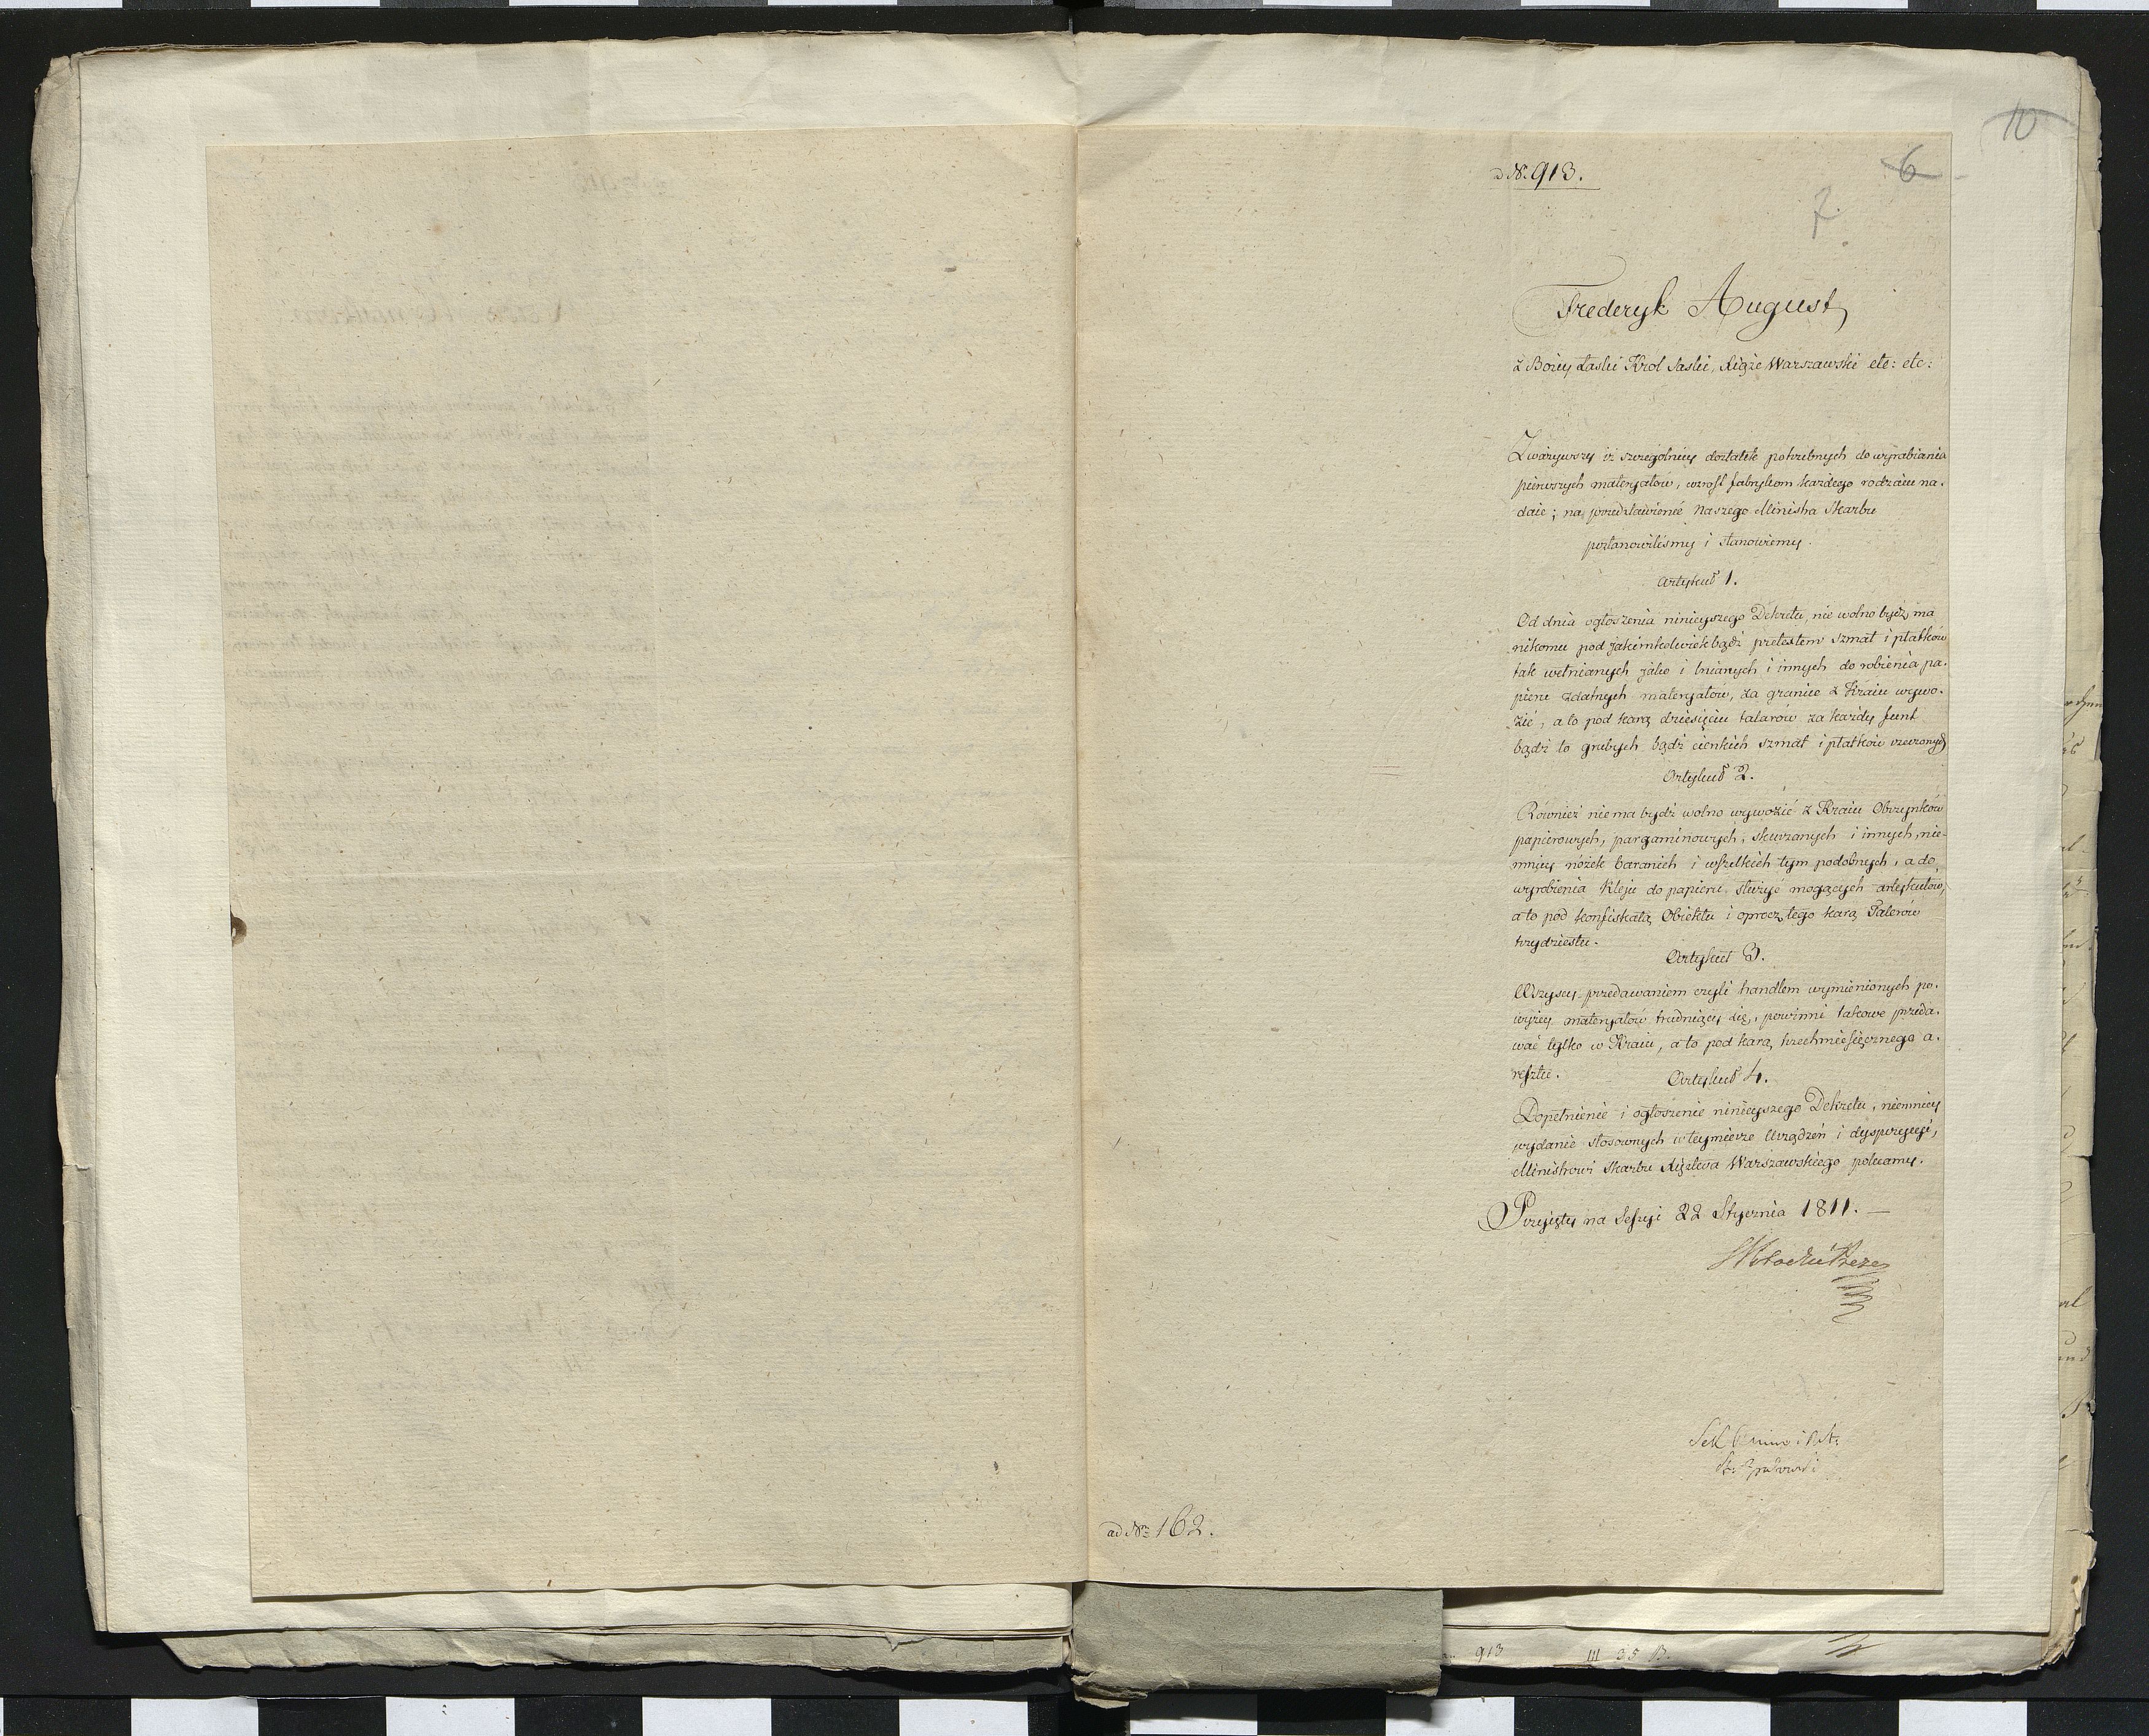 10
6
7
ad Nr 913.
Frederyk August
z Bożey Łaski Krol Saski, Xiąże Warszawski etc: etc:
Zważywszy iż szczegolniey dostatek potrzebnych do wyrabiania
pierwszych materyałow, wzrost fabrykom każdego rodzaiu na-
daie; na przedstawienié Naszego Ministra Skarbu
postanowiliśmy i stanowiemy.
Artykuł 1.
Od dnia ogłoszenia ninieyszego Dekretu, nie wolno bydź ma
nikomu pod jakimkolwiek bądź pretextem szmat i płatków
tak wełnianych jako i lnianych i innych do robienia pa-
pieru zdatnych materyałów, za granice z Kraiu wywo-
zić, a to pod karą dziesięciu talarów za każdy funt
bądź to grubych bądź cienkich szmat i płatków rzeczonych
Artykuł 2.
Również niema bydź wolno wywozić z Kraiu Obrzynków
papierowych, pargaminowych, skurzanych i innych, nie-
mniey nóżek baranich i wszelkich tym podobnych, a do
wyrobienia kleju do papieru służyć mogących artykułów,
a to pod konfiskatą Obiektu i oprocz tego karą Talerów
trzydziestu.
Artykuł 3.
Wszyscy przedawaniem czyli handlem wymienionych po-
wyżey materyałow trudniący się, powinni takowe przeda-
wać tylko w Kraiu, a to pod karą trzechmiesięcznego a-
resztu.
Artykuł 4.
Dopełnienie i ogłoszenie ninieyszego Dekretu, niemniey
wydanie stosownych w teymierze Urządzeń i dyspozycyi,
Ministrowi Skarbu Xięztwa Warszawskiego polecamy.
Przyięty na Sessyi 22 Stycznia 1811. —
ad Nr 162.
913 III 35 B.